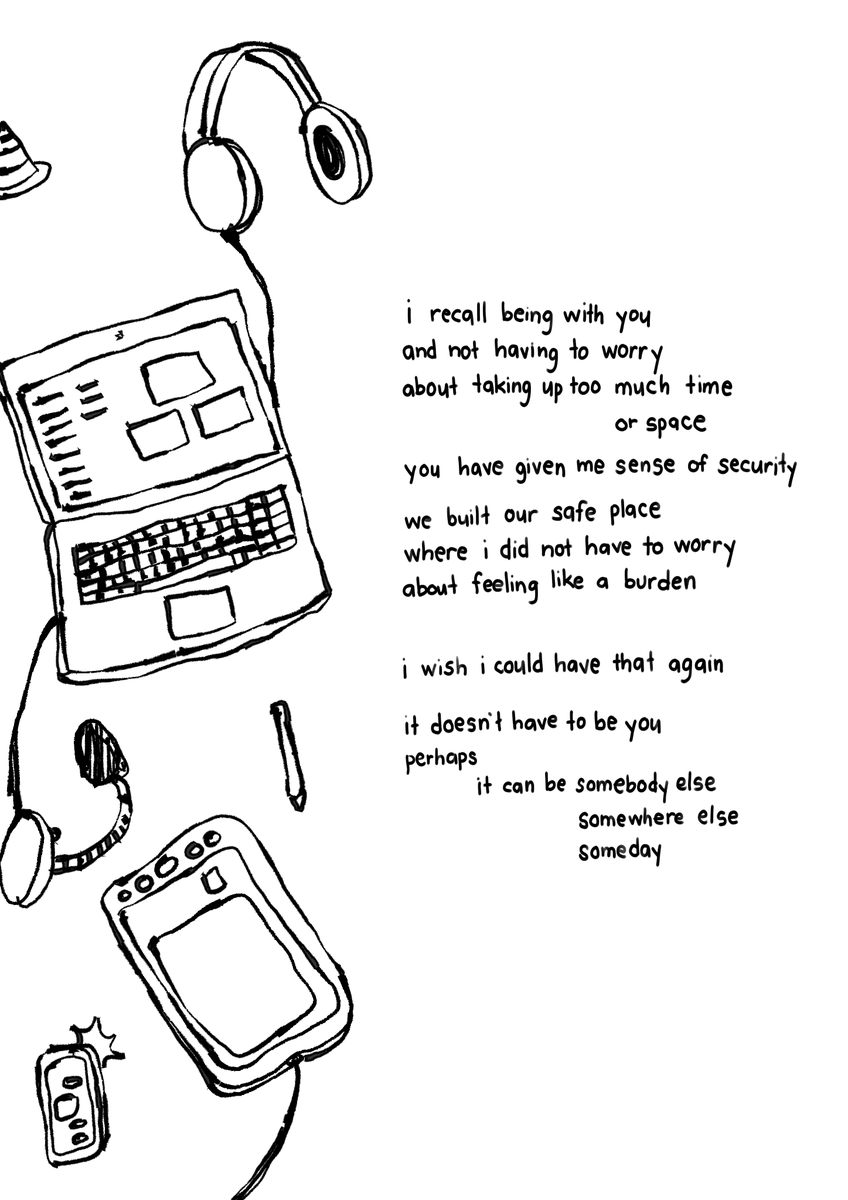 i recall being with you
and not having to worry
about taking up too much time
or space
you have given me sense of security
we built our safe place
where i did not have to worry
about feeling like a burden
i wish i could have that again
it doesn't have to be you
perhaps
it can be somebody else
somewhere else
someday